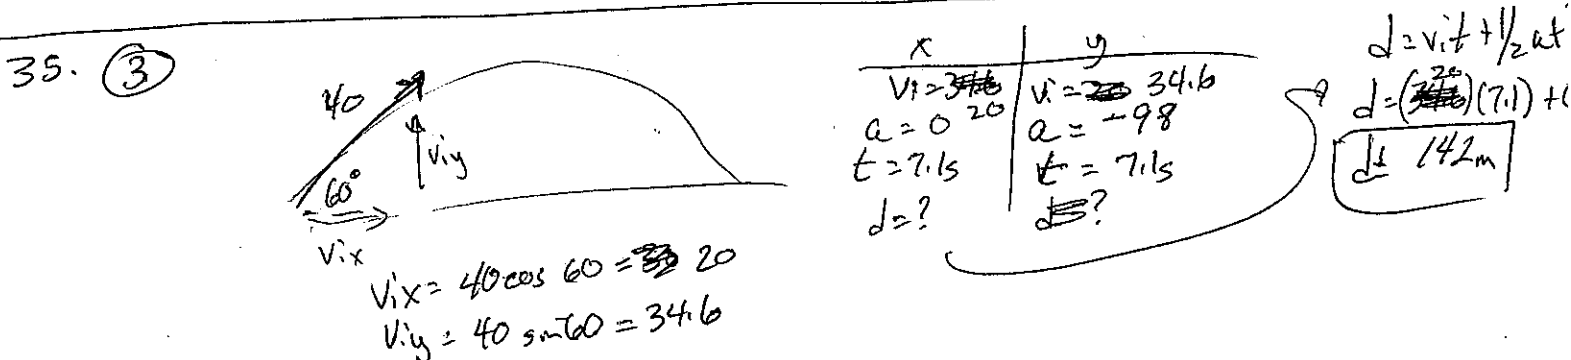 35. (3)
40
60°
Viy
Vix
Vix = 40 cos 60 = 20
Viy = 40 sin 60 = 34.6
x | y
Vi = 20 | Vi = 34.6
a = 0 | a = -98
t = 7.1s | t = 7.1s
d = ? | d = ?
d = Vit + 1/2 at
d = (20)(7.1) + (
d = 142 m